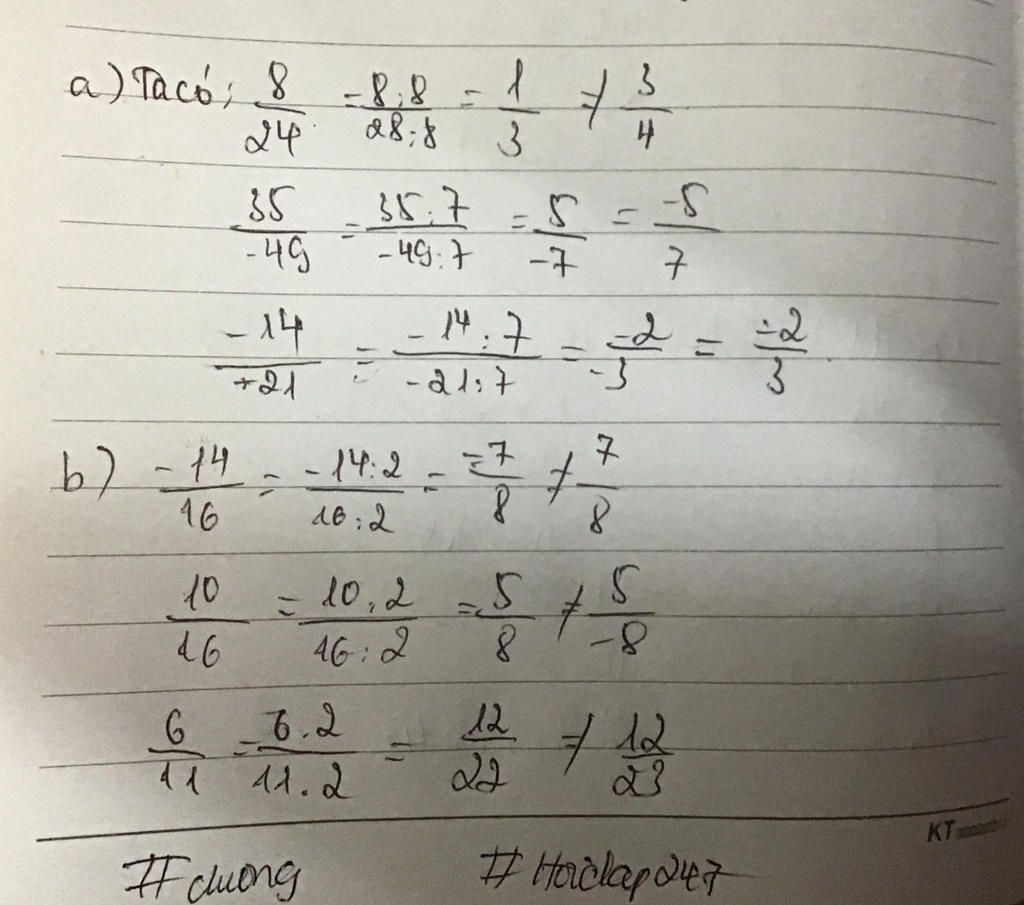 a) Ta có; 8/24 = 8:8/28:8 = 1/3 ≠ 3/4
35/-49 = 35:7/-49:7 = 5/-7 = -5/7
-14/+21 = -14:7/-21:7 = -2/-3 = -2/3
b) -14/16 = -14:2/16:2 = -7/8 ≠ 7/8
10/16 = 10:2/16:2 = 5/8 ≠ 5/-8
6/11 = 6.2/11.2 = 12/22 ≠ 12/23
KT
#duong #Hoidap247